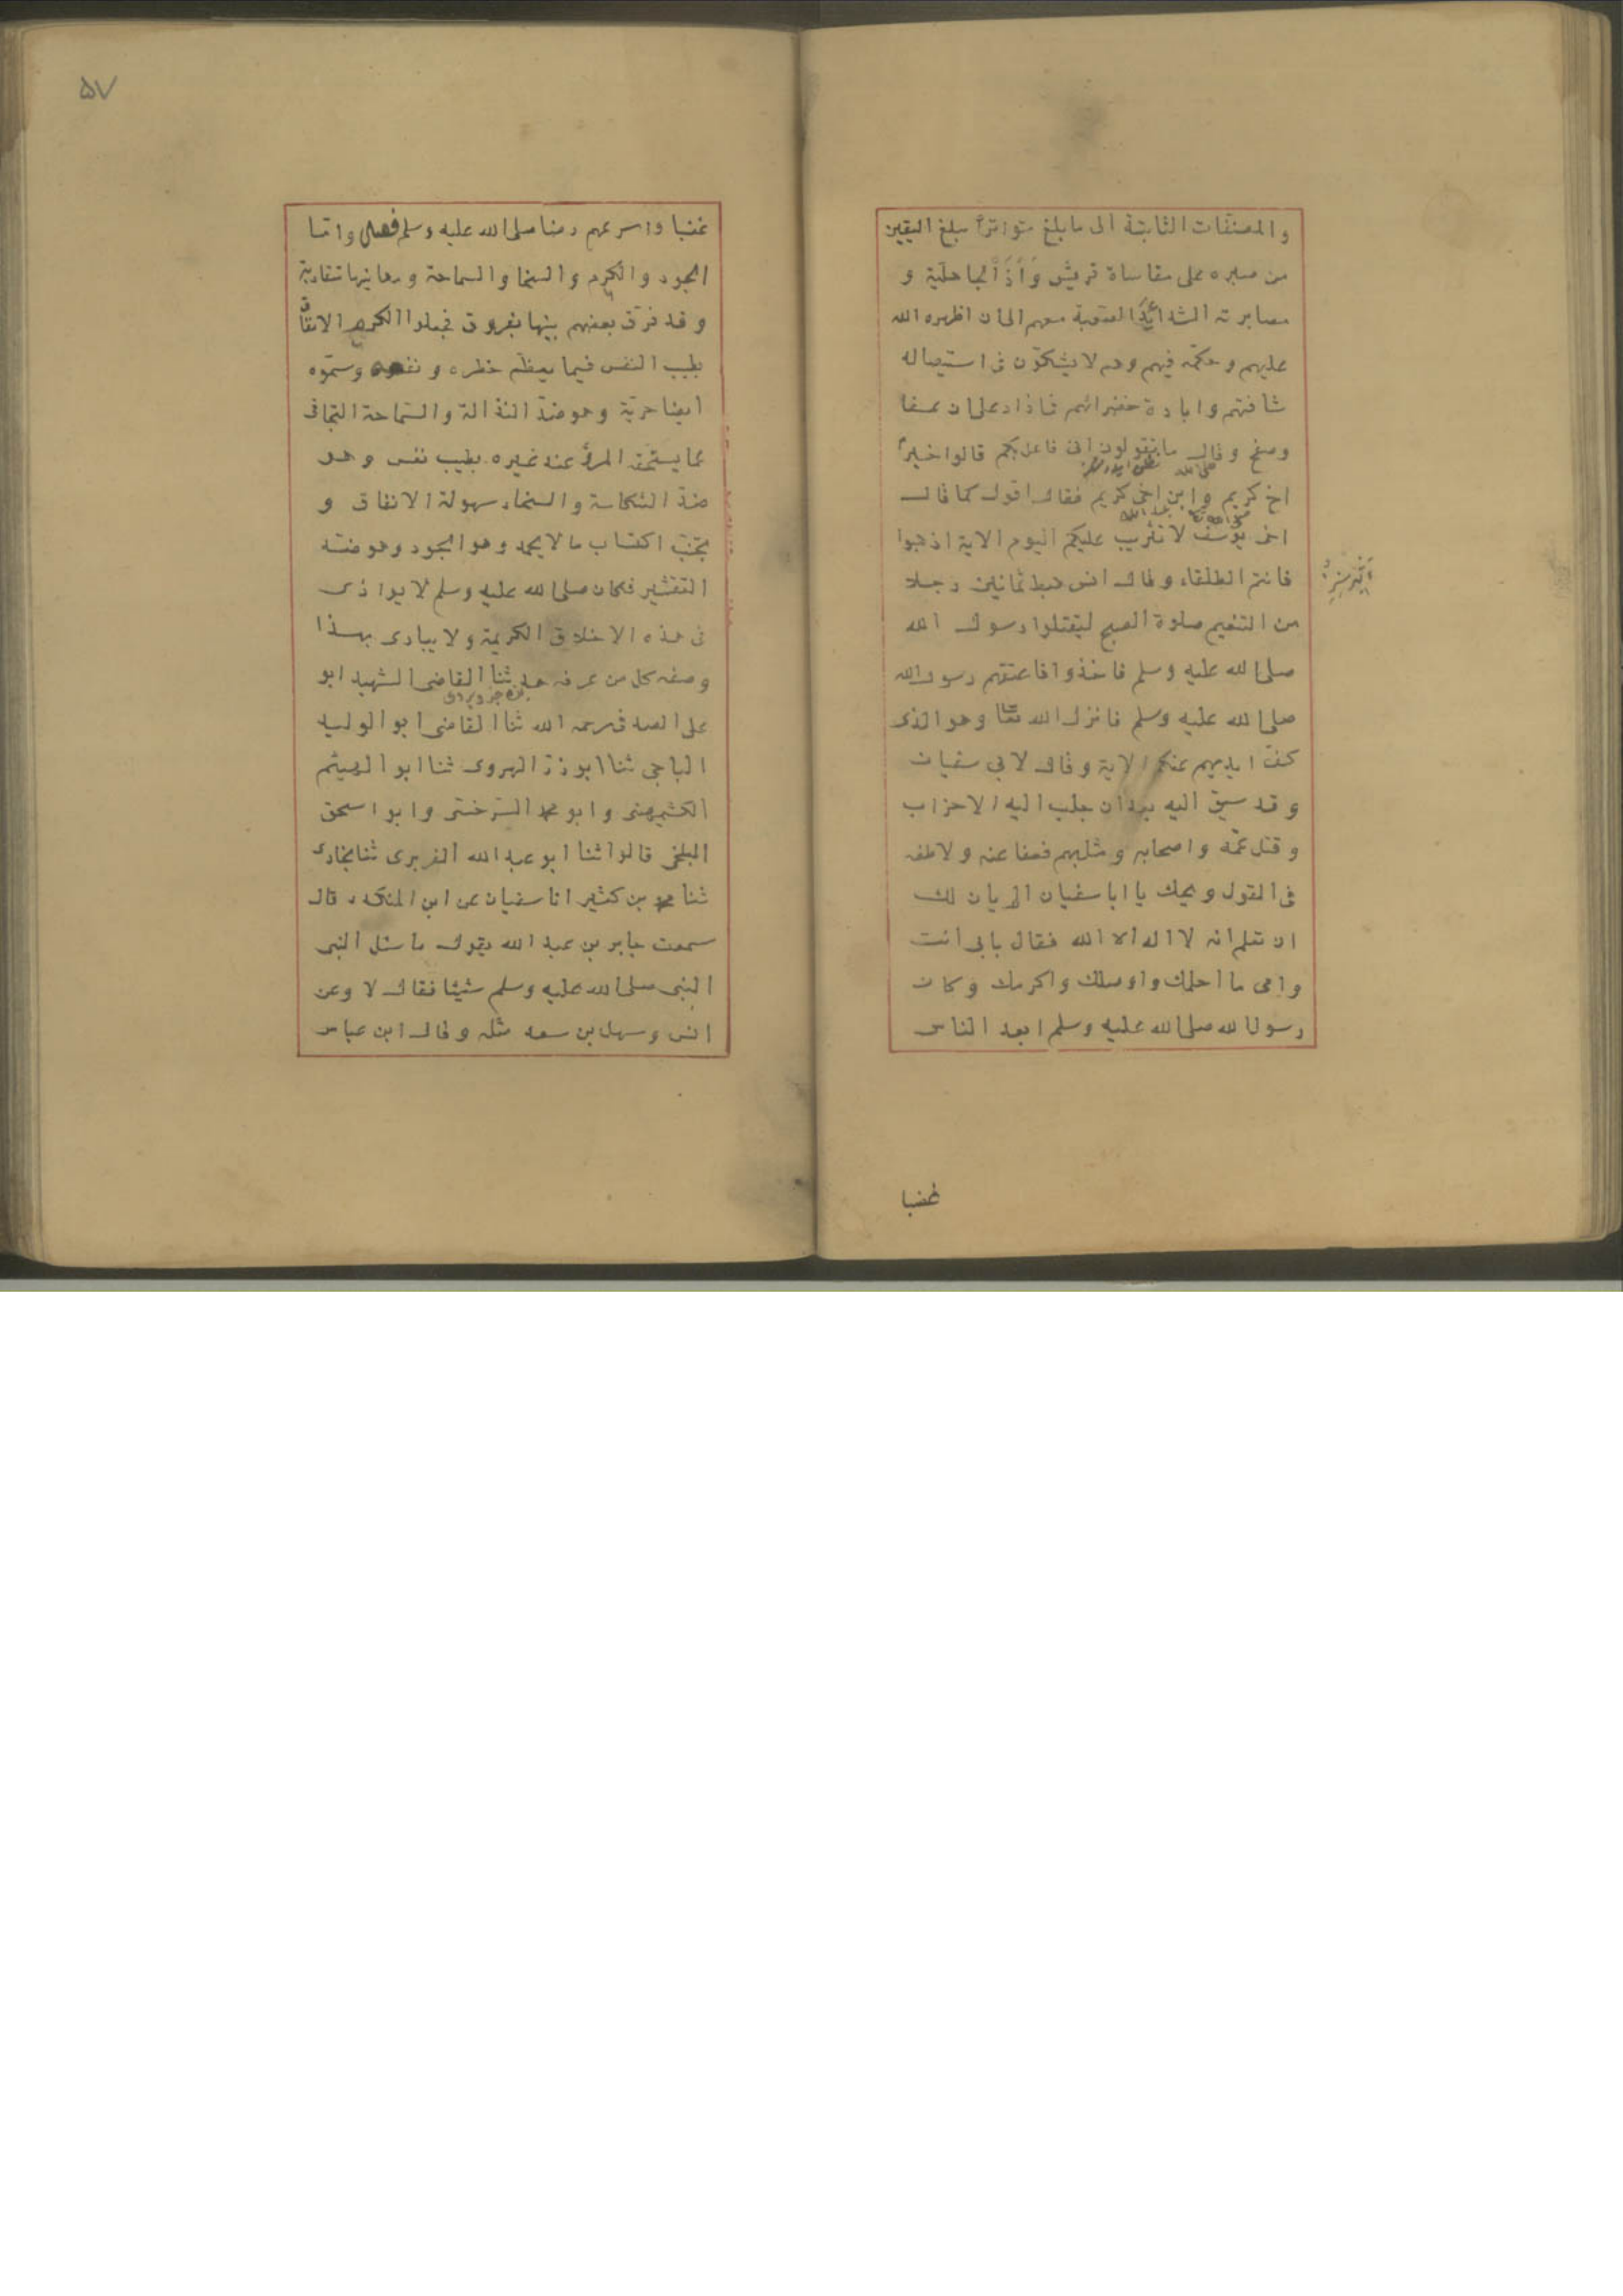 والمصنفات الثابتة الى ما بلغ متواترا مبلغ اليقين
من صبره على مقاساة قريش وَاَذَا الجاهلية و
مصابرته الشدائد الصعبة معهم الى ان اظهره الله
عليهم وحكمه فيهم وهم لا يشكون فى استيصاله
شافتهم وابادة خضرائهم فما زاد على ان عفا
وصفح وقال ما تقولون انى فاعل بكم قالوا خيرا
اخ كريم وابن اخى كريم فقال اقول كما قال
صلى الله
اخى يوسف لا تثريب عليكم اليوم الاية اذهبوا
فانتم الطلقاء وقال انس هبط ثمانين رجلا
من التنعيم صلوة الصبح ليقتلوا رسول الله
صلى الله عليه وسلم فاخذوا فاعتقهم رسول الله
صلى الله عليه وسلم فانزل الله تعا وهو الذى
كف ايديهم عنكم الاية وقال لابى سفيان
وقد سيق اليه بعد ان جلب اليه الاحزاب
وقتل عمه واصحابه ومثلبهم فعفا عنه ولاطفه
فى القول ويحك يا ابا سفيان الم يان لك
ان تعلم انه لا اله الا الله فقال بابى انت
وامى ما احلمك واوصلك واكرمك وكان
رسول الله صلى الله عليه وسلم ابعد الناس
غضبا
۵۷
غضبا واسرعهم رضا صلى الله عليه وسلم فصل واما
الجود والكرم والسخا والسماحة ومعانيها متقاربة
وقد فرق بعضهم بينها بفروق فجعلوا الكرم الانفاق
بطيب النفس فيما يعظم خطره ونفعه وسموه
ايضا حرية وهو ضد النذالة والسماحة التجافى
عما يستحقه المرؤ عند غيره بطيب نفس وهو
ضد الشكاسة والسخاء سهولة الانفاق و
تجنب اكتساب ما لا يحمد وهو الجود وهو ضد
التقتير فكان صلى الله عليه وسلم لا يوازى
فى هذه الاخلاق الكريمة ولا يبارى بهذا
وصفه كل من عرفه حدثنا القاضى الشهيد ابو
على الصدفى رحمه الله ثنا القاضى ابو الوليد
الباجى ثنا ابو ذر الهروى ثنا ابو الهيثم
الكشميهنى وابو محمد السرخسى وابو اسحق
البلخى قالوا ثنا ابو عبد الله الفربرى ثنا بخارى
ثنا محمد بن كثير انا سفيان عن ابن المنكدر قال
سمعت جابر بن عبد الله يقول ما سئل النبى
النبى صلى الله عليه وسلم شيئا فقال لا وعن
انس وسهل بن سعد مثله وقال ابن عباس